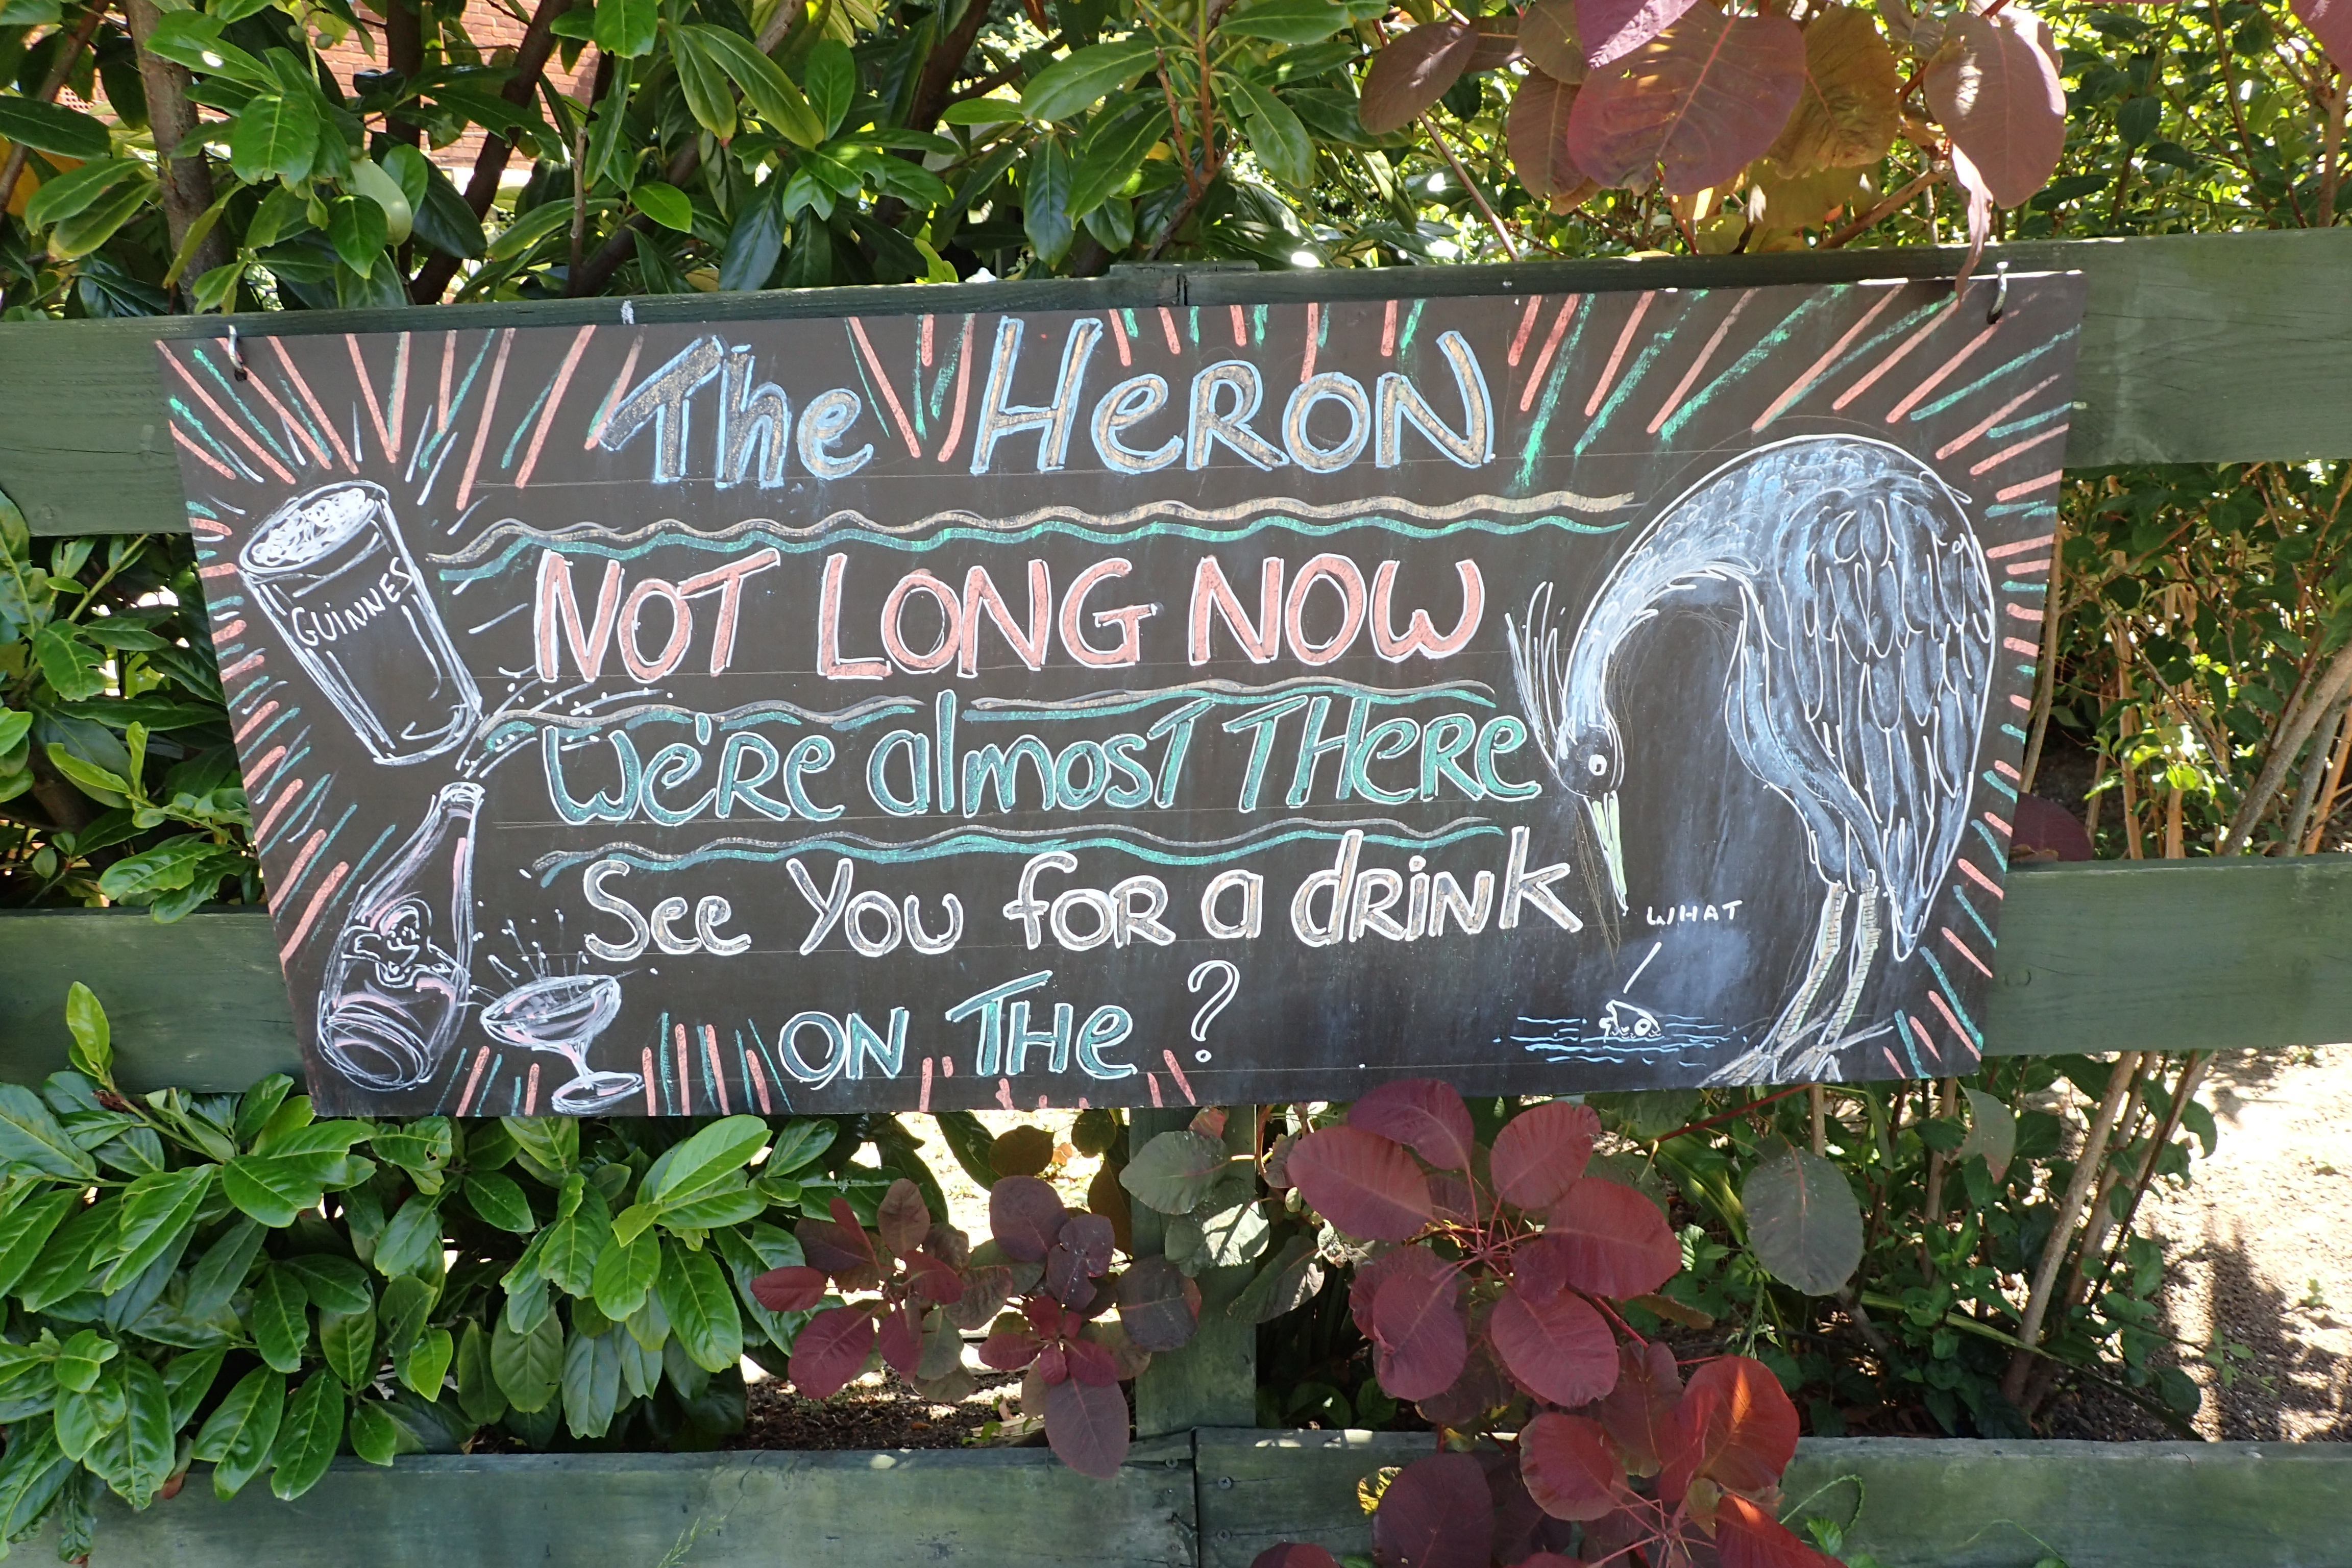 The HeRON
GUINNES
NOT LONG NOW
We're almosT THeRe
See You foR a dRiNk
WHAT
ON THe ?